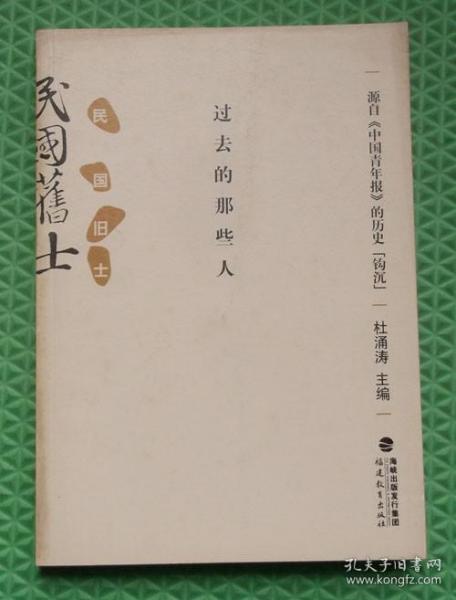 民國舊士
民国旧士
过去的那些人
源自《中国青年报》的历史「钩沉」
杜涌涛 主编
海峡出版发行集团
福建教育出版社
孔夫子旧书网
www.kongfz.com